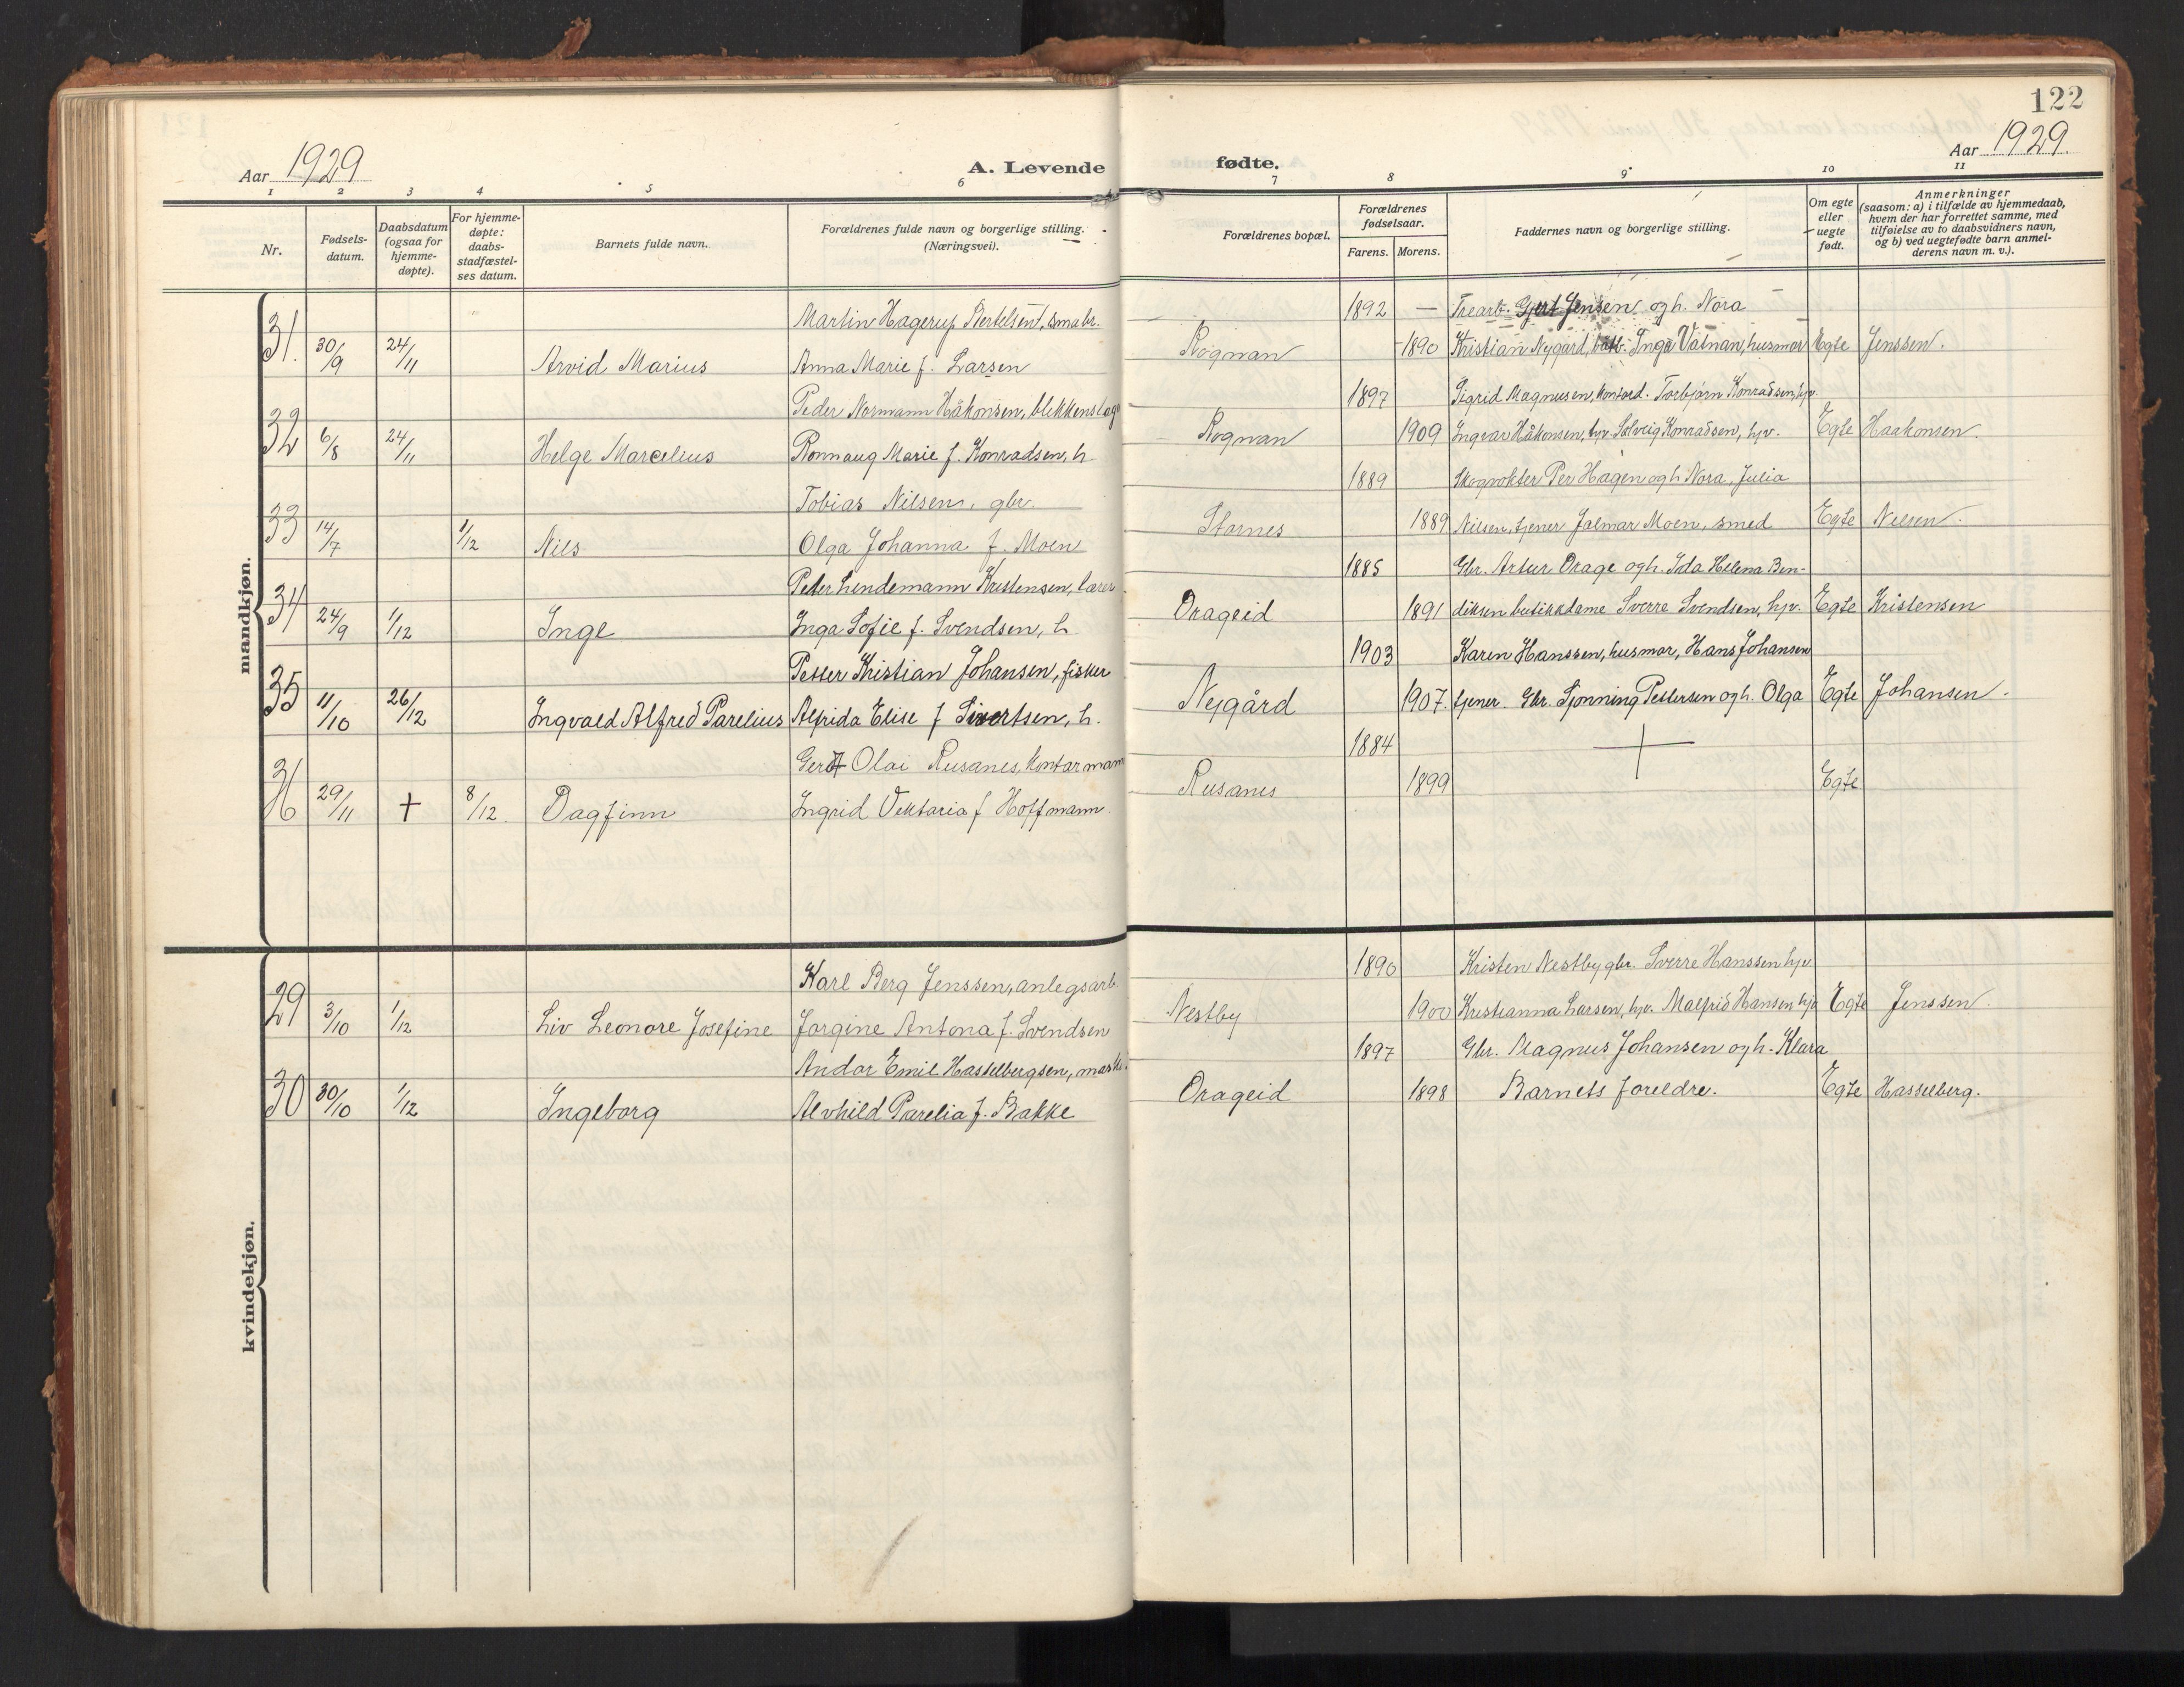 122
Aar 1929
A. Levende fødte.
Aar 1929.
1 2 3 4 5 6 7 8 9 10 11
Nr.
Fødsels-
datum.
Daabsdatum
(ogsaa for
hjemme-
døpte).
For hjemme-
døpte:
daabs-
stadfæstel-
ses datum.
Barnets fulde navn.
Forældrenes fulde navn og borgerlige stilling.
(Næringsvei).
Forældrenes bopæl.
Forældrenes
fødselsaar.
Farens. Morens.
Faddernes navn og borgerlige stilling.
Om egte
eller
uegte
født.
Anmerkninger
(saasom: a) i tilfælde av hjemmedaab,
hvem der har forrettet samme, med
tilføielse av to daabsvidners navn,
og b) ved uegtefødte barn anmel-
derens navn m. v.).
mandkjøn.
Martin Hagerup Bertelsen, småbr. 1892 — Trearb. Gjert Jensen og h. Nora
31. 30/9 24/11 Arvid Marius Anna Marie f. Larsen Rognan 1890 Kristian Nygård, Inga Vatnan, husmor Egte Jenssen.
Peder Normann Håkonsen, blikkenslag 1897 Sigrid Magnusen, kontord. Torbjørn Konradsen, hjv.
32 6/8 24/11 Helge Marcelius Ronnaug Marie f. Konradsen, h. Rognan 1909 Ingvar Håkonsen, hjv. Solveig Konradsen, hjv. Egte Haakonsen.
Tobias Nilsen, gbr. 1889 Skogvokter Per Hagen og h. Nora, Julia
33 14/7 1/12 Nils Olga Johanna f. Moen Stornes 1889 Nilsen, tjener Jalmar Moen, smed Egte Nilsen.
Peter Lindemann Kristensen, lærer 1885 Gbr. Artur Drage og h. Ida Helena Ben-
34 24/9 1/12 Inge Inga Sofie f. Svendsen, h. Drageid 1891 diksen butikkdame Sverre Svendsen, hjv. Egte Kristensen
Petter Kristian Johansen, fisker 1903 Karen Hanssen, husmor, Hans Johansen
35 11/10 26/12 Ingvald Alfred Parelius Alfrida Elise f Sivertsen, h. Nygård 1907. tjener. Gbr. Sjonning Pettersen og h. Olga Egte Johansen.
Olai Rusanes, Kontormann 1884
36 29/11 + 8/12. Dagfinn Ingrid Viktoria f Hoffmann. Rusanes 1899 + Egte
kvindekjøn.
Karl Berg Jenssen, anlegsarb. 1890 Kristen Nestby gbr. Sverre Hanssen hjv.
29 3/10 1/12 Liv Leonore Josefine Jorgine Antona f. Svendsen Nestby 1900 Kristianna Larsen, hjv. Malfrid Hansen hjv Egte Jenssen.
Andor Emil Hasselbergsen, mask. 1897 Gbr. Magnus Johansen og h. Klara
30 30/10 1/12 Ingeborg Alvhild Parelia f. Bakke Drageid 1898 Barnets foreldre. Egte Hasselberg.